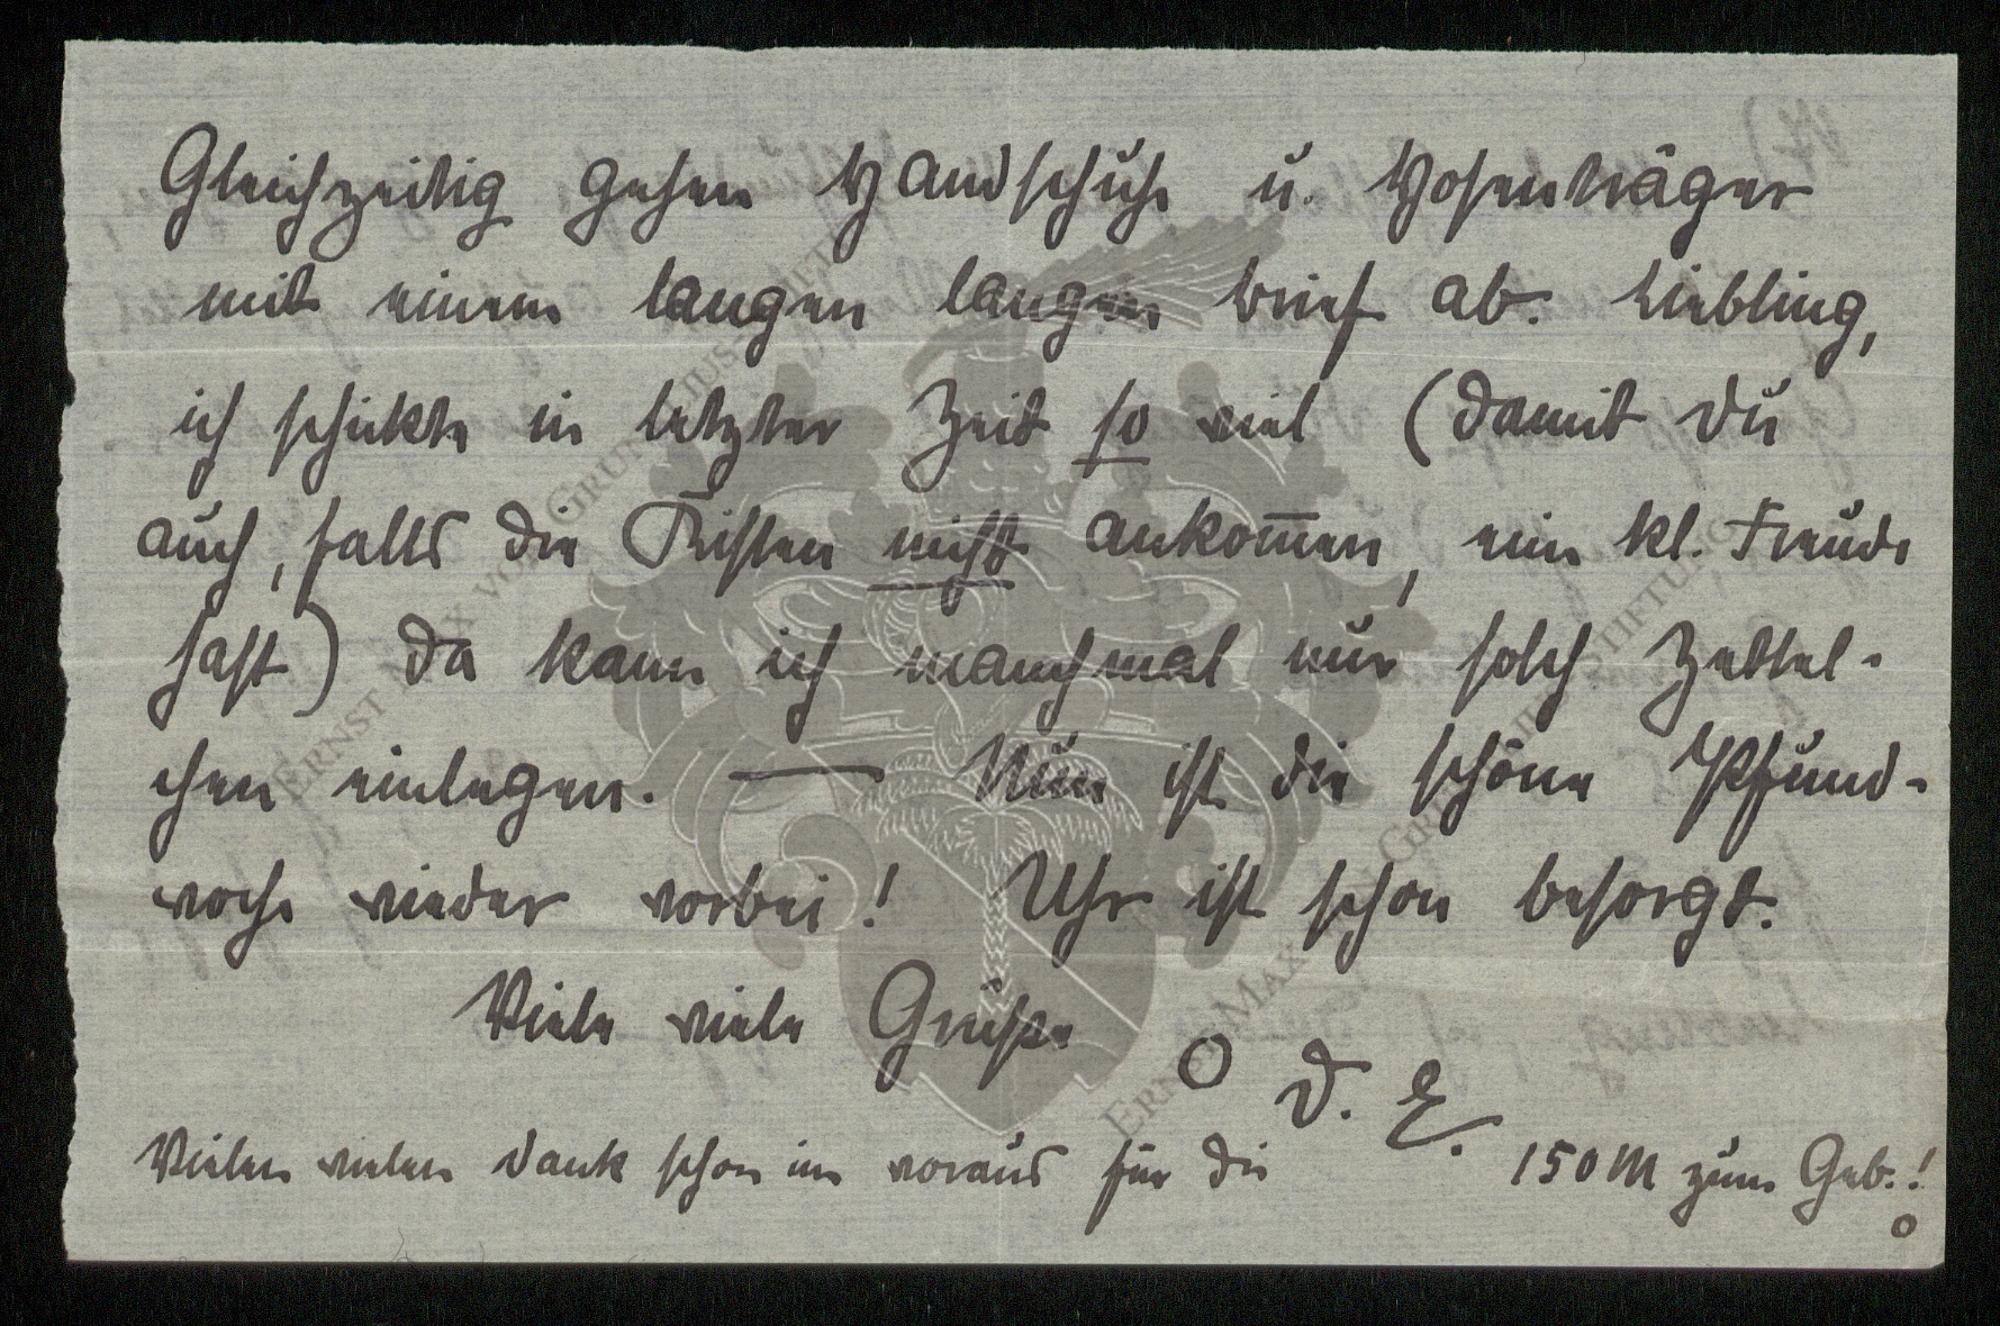 Gleichzeitig gehen Handschuhe u. Hosenträger
mit einem langen langen Brief ab. Liebling,
ich schickte in letzter Zeit so viel (damit Du
auch, falls die Kisten nicht ankom̅en, eine kl. Freude
hast) da kann ich manchmal nur solch Zettel-
chen einlegen. — Nun ist die schöne Pfund-
woche wieder vorbei! Uhr ist schon besorgt.
Viele viele Grüße
O D. E.
Vielen vielen Dank schon im voraus für die 150 M zum Geb.!
O
ERNST MAX VON GRUNELIUS-STIFTUNG
ERNST MAX VON GRUNELIUS-STIFTUNG